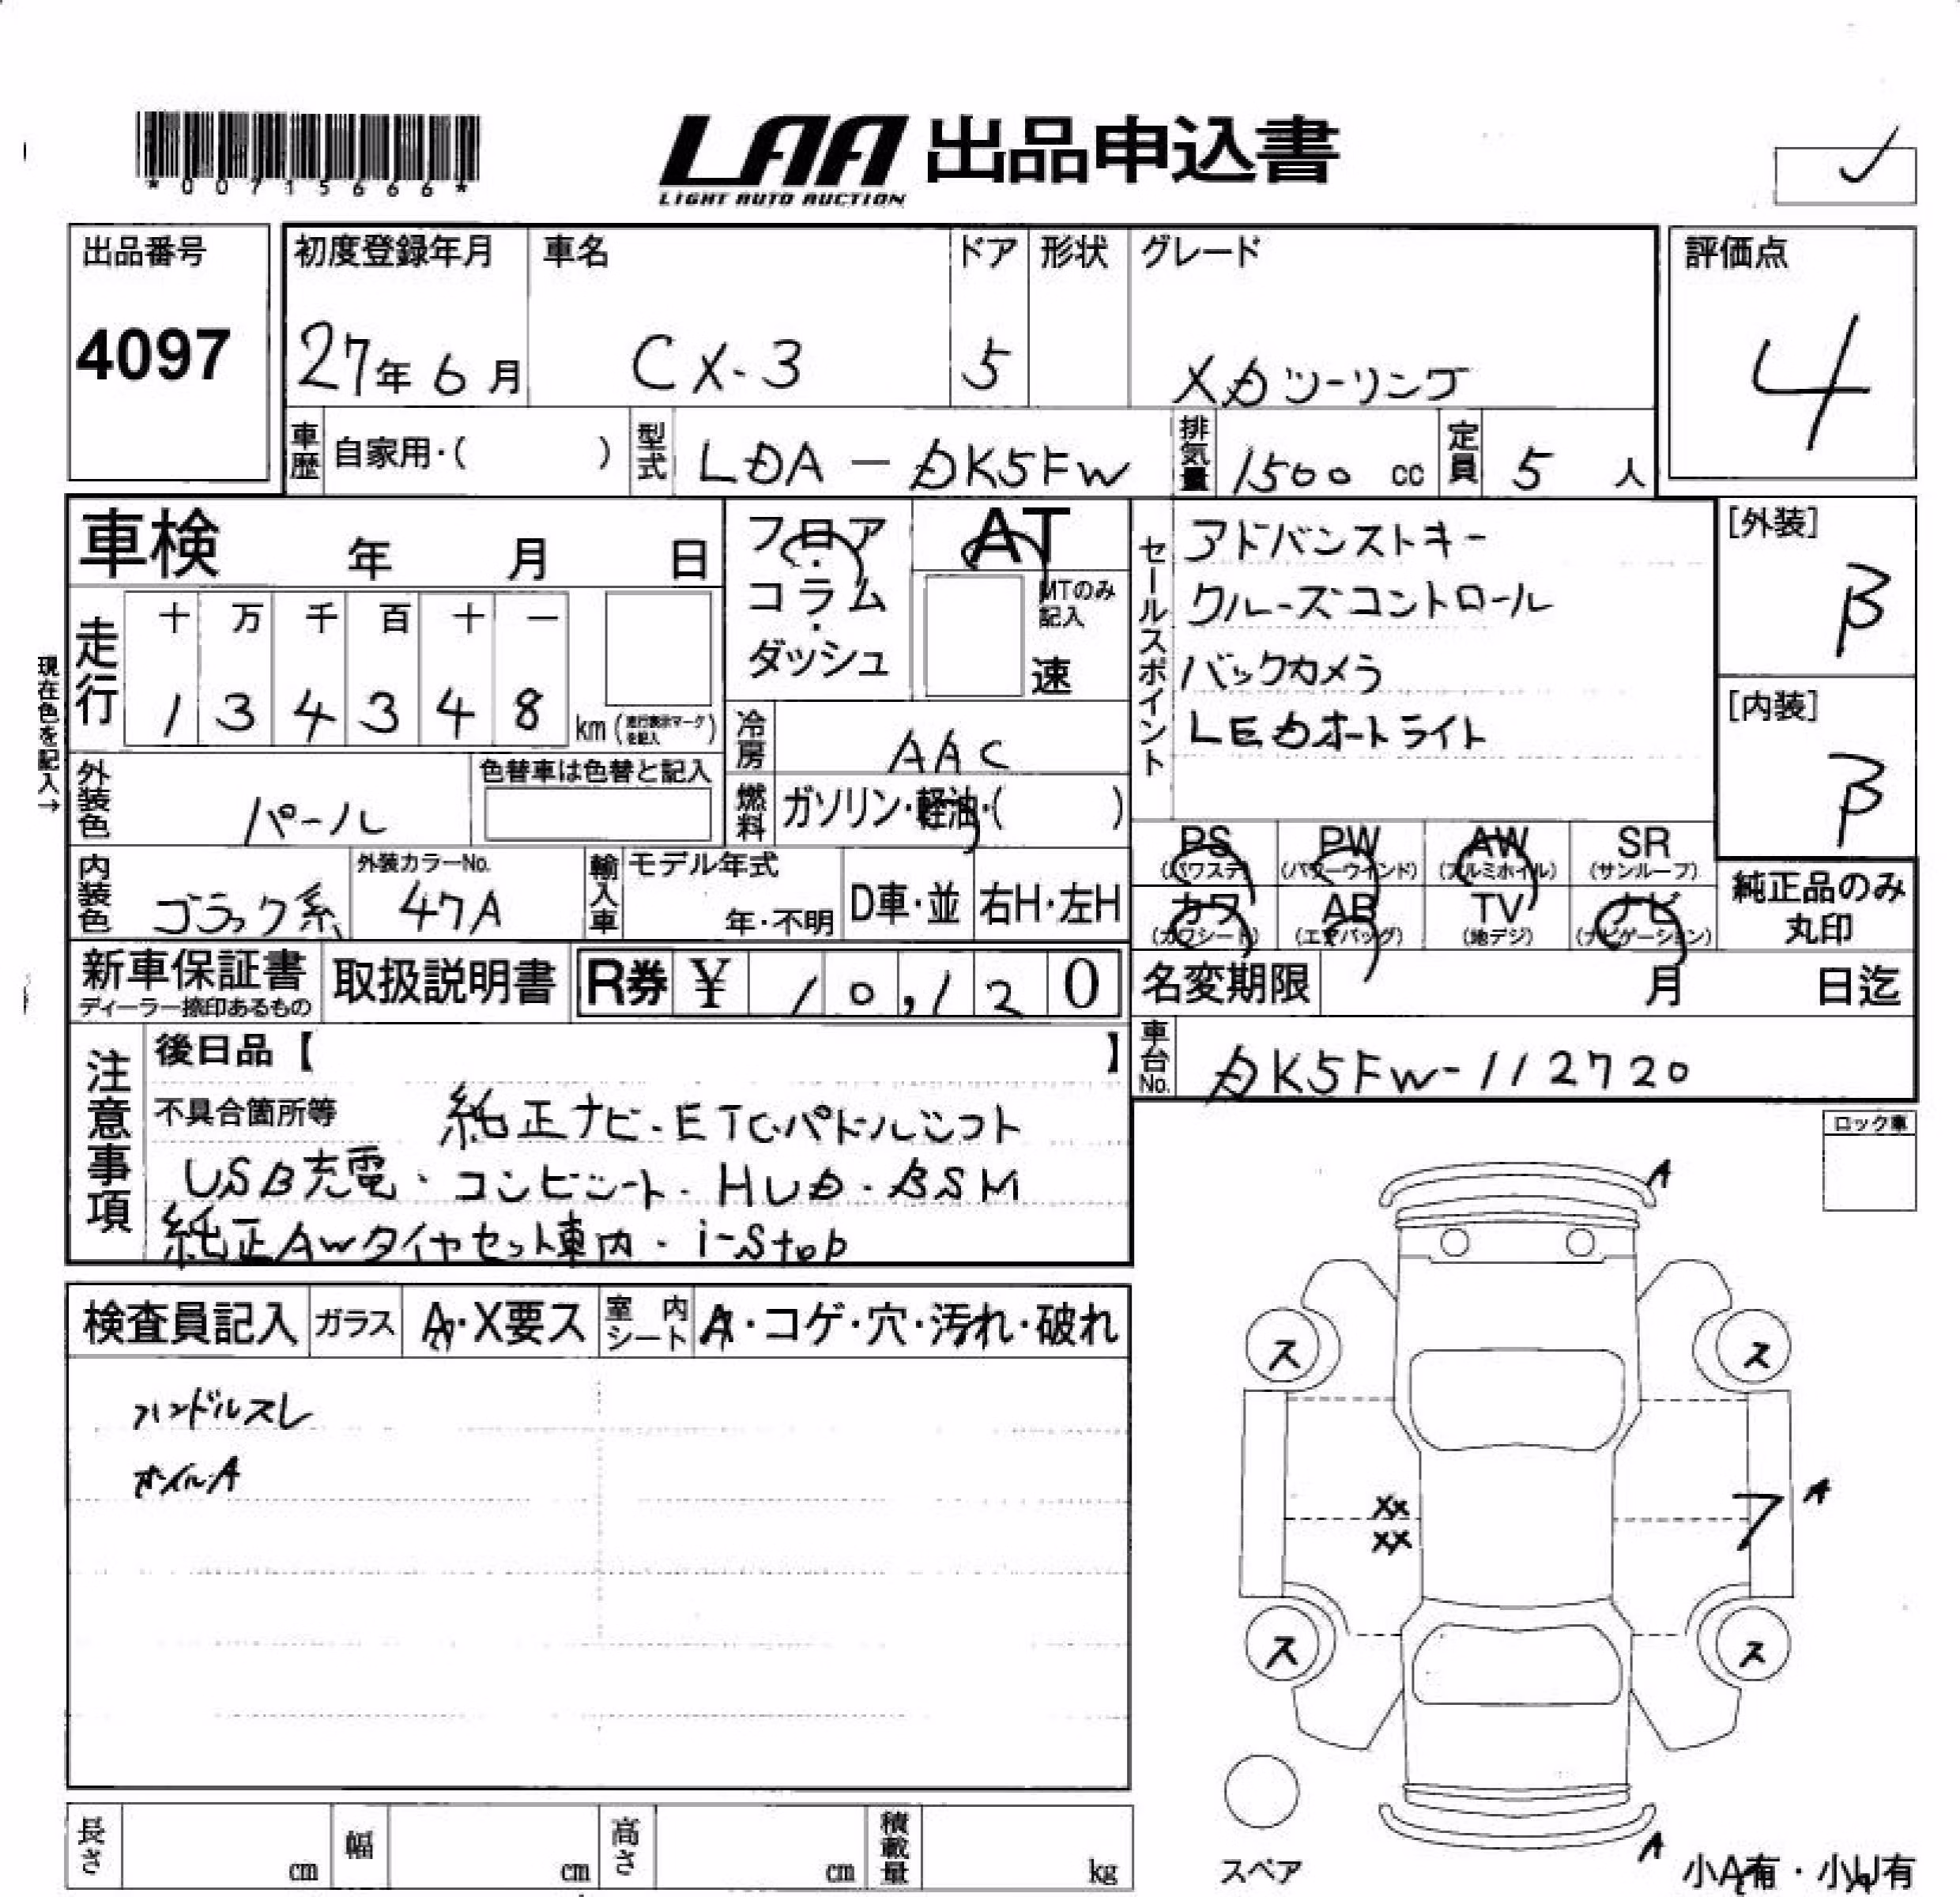 *00715666*
LAA 出品申込書
LIGHT AUTO AUCTION
出品番号
4097
初度登録年月
27年6月
車名
CX-3
ドア
5
形状
グレード
XDツーリング
評価点
4
車歴 自家用・( )
型式 LDA-DK5FW
排気量 1500 cc
定員 5 人
車検 年 月 日
フロア・コラム・ダッシュ
AT
MTのみ記入
速
セールスポイント
アドバンストキー
クルーズコントロール
バックカメラ
LEDオートライト
[外装]
B
[内装]
B
現在色を記入→
走行
十 万 千 百 十 一
1 3 4 3 4 8 km (走行表示マークを記入)
冷房 AAC
外装色 パール
色替車は色替と記入
燃料 ガソリン・軽油・( )
PS (パワステ)
PW (パワーウインド)
AW (アルミホイル)
SR (サンルーフ)
カワ (カワシート)
AB (エアバッグ)
TV (地デジ)
ナビ (ナビゲーション)
純正品のみ丸印
内装色 ブラック系
外装カラーNo.
47A
輸入車
モデル年式
年・不明
D車・並
右H・左H
新車保証書
ディーラー捺印あるもの
取扱説明書
R券 ¥ 10,120
名変期限 月 日迄
車台No. DK5FW-112720
注意事項
後日品【 】
不具合箇所等 純正ナビ・ETC・パドルシフト
USB充電・コンビシート・HUD・BSM
純正AWタイヤセット車内・i-stop
ロック車
検査員記入
ガラス A・X要ス
室内シート A・コゲ・穴・汚れ・破れ
ハンドルスレ
オイルA
A
ス ス
XX
XX
フ A
ス ス
スペア
A
小A有・小U有
長さ cm
幅 cm
高さ cm
積載量 kg